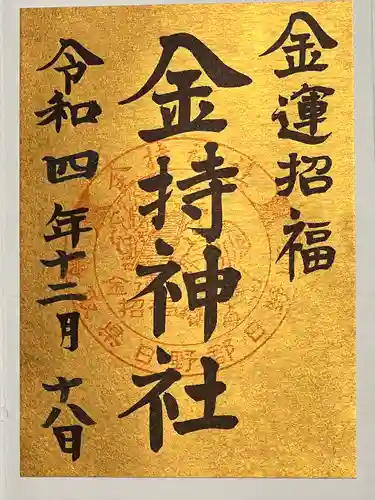 金運招福
金持神社
令和四年十二月十八日